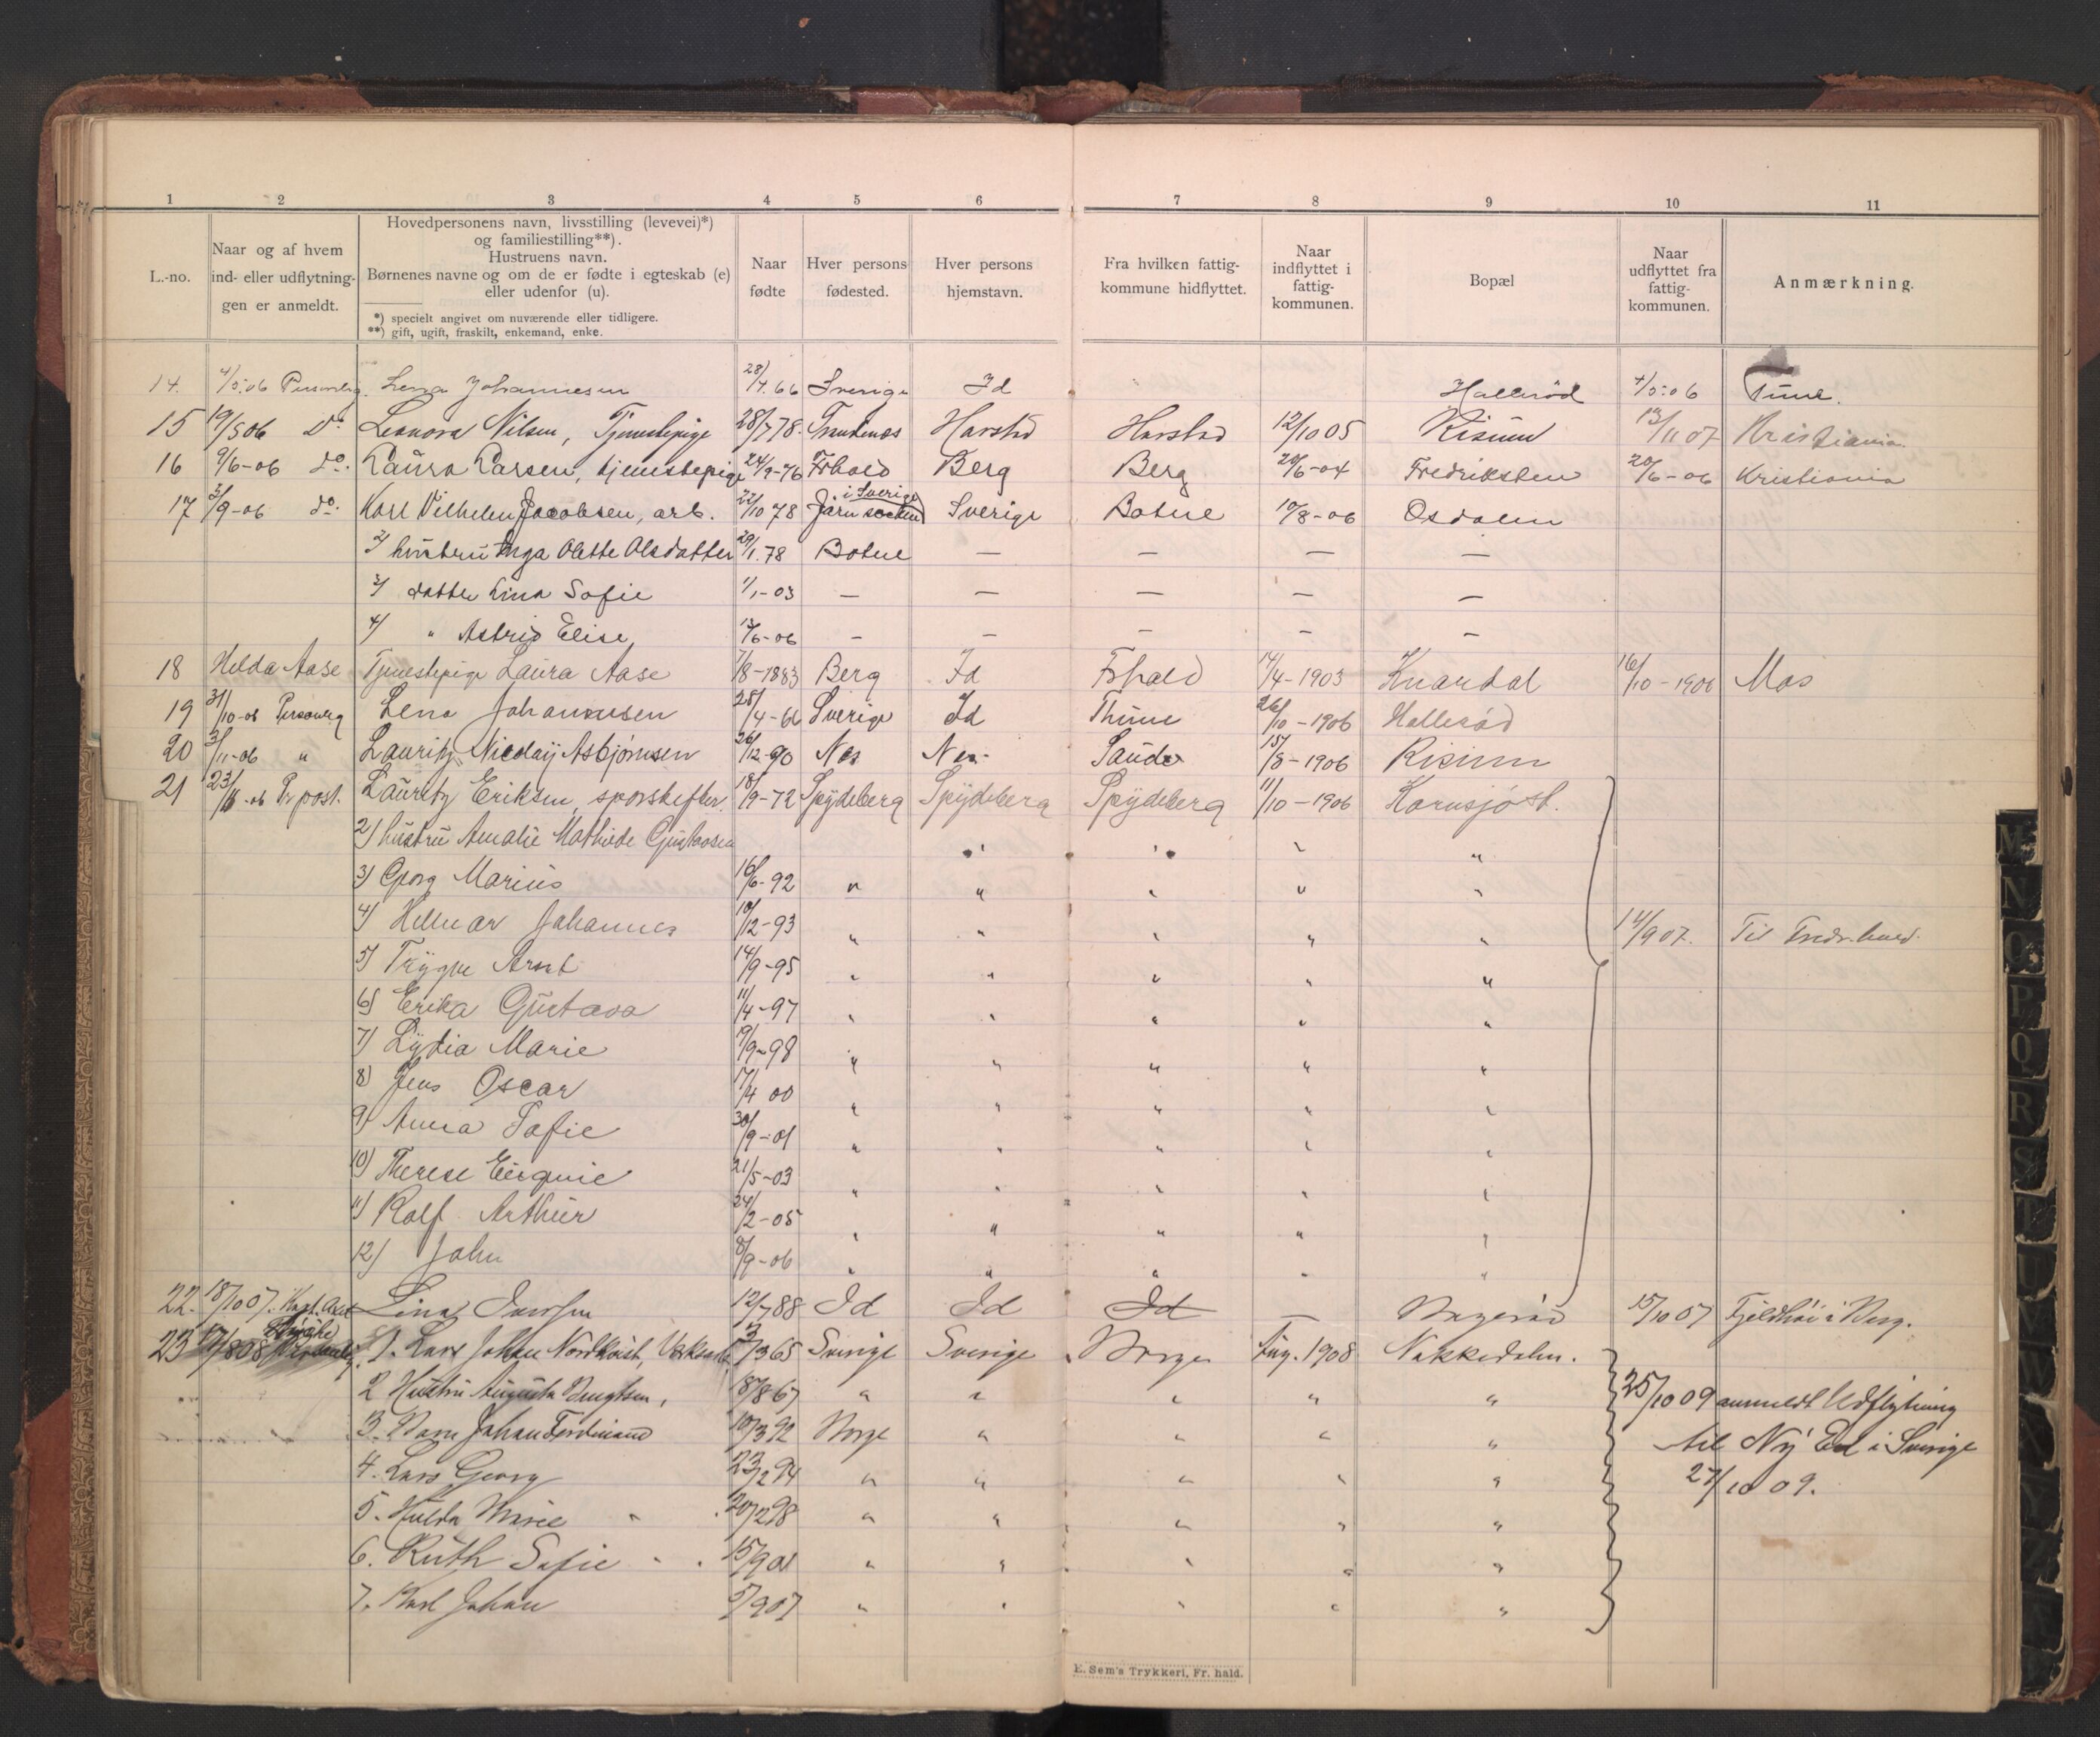 1 2 3 4 5 6 7 8 9 10 11
L.-no.
Naar og af hvem
ind- eller udflytning-
gen er anmeldt.
Hovedpersonens navn, livsstilling (levevei)*)
og familiestilling**).
Hustruens navn.
Børnenes navne og om de er fødte i egteskab (e)
eller udenfor (u).
*) specielt angivet om nuværende eller tidligere.
**) gift, ugift, fraskilt, enkemand, enke.
Naar
fødte
Hver persons
fødested.
Hver persons
hjemstavn.
Fra hvilken fattig-
kommune hidflyttet.
Naar
indflyttet i
fattig-
kommunen.
Bopæl
Naar
udflyttet fra
fattig-
kommunen.
Anmærkning.
14. 4/5.06 Personlig Lena Johannesen 28/4.66 Sverige Id Hallerød 4/5.06 Tune.
15 19/5 06 Do Leonora Nilsen, Tjenestepige 28/7 78. Trondenes Harstad Harstad 12/10 05 Risum 13/11 07 Kristiania
16 9/6-06 do. Laura Larsen, tjenestepige 24/9-76 Frhald Berg Berg 20/6-04 Fredriksten 20/6-06 Kristiania
17 3/9-06 do. Karl Vilhelm Jacobsen, arb. 22/10 78 Järn socken i Sverige Sverige Botne 10/8-06 Osdalen
2) hustru Inga Olette Olsdatter 29/1.78 Botne — — — —
3) datter Lina Sofie 1/1-03 — — — — —
4) " Astrid Elise 13/6-06 — — — — —
18 Helda Aase Tjenestepige Laura Aase 7/8-1883 Berg Id Frhald 14/4-1903 Knardal 16/10-1906 Mos
19 31/10-06 Personlig Lena Johannesen 28/4-66 Sverige Id Thune 26/10-1906 Hallerød
20 3/11-06 " Lauritz Nicolaij Asbjørnsen 26/12-90 Nes Nes Saude 15/8-1906 Risum
21 23/11-06 Pr post. Lauritz Eriksen, sporskifter. 18/9-72 Spydeberg Spydeberg Spydeberg 11/10-1906 Kornsjø st.
2) hustru Amalie Mathilde Gustavsen " " " "
3) Georg Marius 16/6-92 " " " " "
4) Helmar Johannes 10/12-93 " " " " " 14/9 07. Til Fredr.hald.
5) Trygve Arnt 14/9-95 " " " " "
6) Erika Gustava 11/4-97 " " " " "
7) Lydia Marie 19/9-98 " " " " "
8) Jens Oscar 17/4 00 " " " " "
9) Anna Sofie 30/9-01 " " " " "
10) Therese 21/5-03 " " " " "
11) Rolf Arthur 24/2-05 " " " " "
12) John 8/9-06 " " " " "
22. 18/10 07. Lina Iversen 12/7 88 Id Id Id — 15/10 07 Fjeldhøi i Berg.
23 17/8 08 1. Lars Johan Nordkvist, 5/3 65 Sverige Sverige Norge Aug. 1908 Nakkedalen.
2 Hustru Augusta Bengtsen, 18/8 67 " " " " " 25/10 09 anmeldt Udflytning
3. Barn Johan Ferdinand 10/3 92 Norge " " " " til Ny Ed i Sverige
4. Lars Georg 23/2 94 " " " " " 27/10 09.
5. Hulda Marie " 20/2 98 " " " " "
6. Ruth Sofie " 15/9 01 " " " " "
7. Karl Johan 5/9 07 " " " " "
E. Sem's Trykkeri, Fr. hald.
M
N
O
P
Q
R
S
T
U